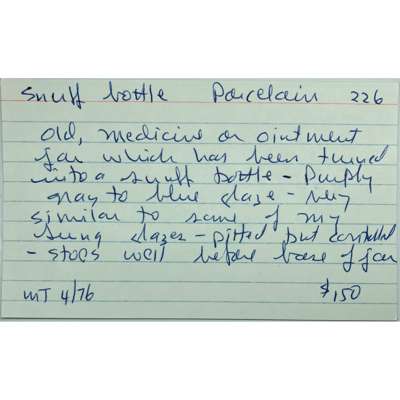 Snuff bottle Porcelain 226
Old, medicine or ointment
jar which has been turned
into a snuff bottle - Purply
gray to blue glaze - very
similar to some of my
Sung glazes - pitted but controlled
- stops well before base of jar
MT 4/76 $150